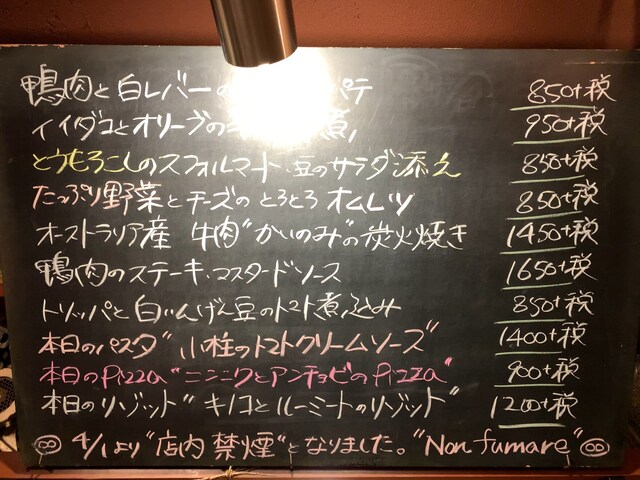 鴨肉と白レバーの パテ 850+税
イイダコとオリーブの 煮 950+税
とうもろこしのスフォルマート・豆のサラダ添え 850+税
たっぷり野菜とチーズのとろとろオムレツ 850+税
オーストラリア産 牛肉"かいのみ"の炭火焼き 1450+税
鴨肉のステーキ・マスタードソース 1650+税
トリッパと白いんげん豆のトマト煮込み 850+税
本日のパスタ"小柱のトマトクリームソース" 1400+税
本日のPizza"ニンニクとアンチョビのPizza" 900+税
本日のリゾット"キノコとルーミートのリゾット" 1200+税
4/1より"店内禁煙"となりました。"Non fumare"